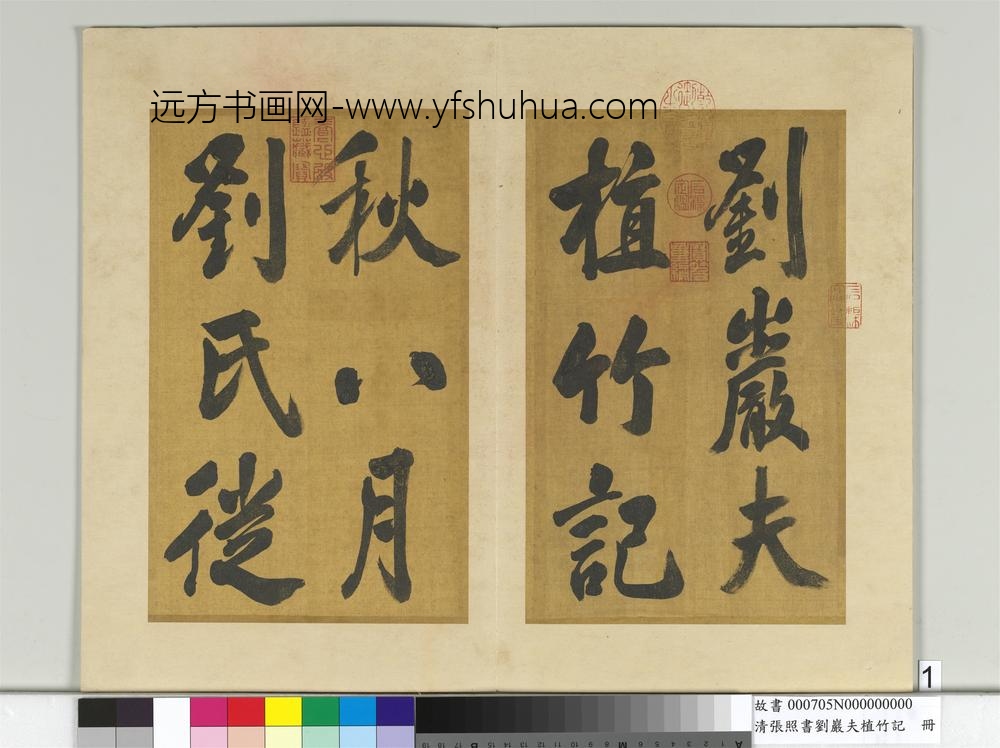 远方书画网-www.yfshuhua.com
劉巖夫
植竹記
秋八月
劉氏從
1
故書 000705N000000000
清張照書劉巖夫植竹記 冊